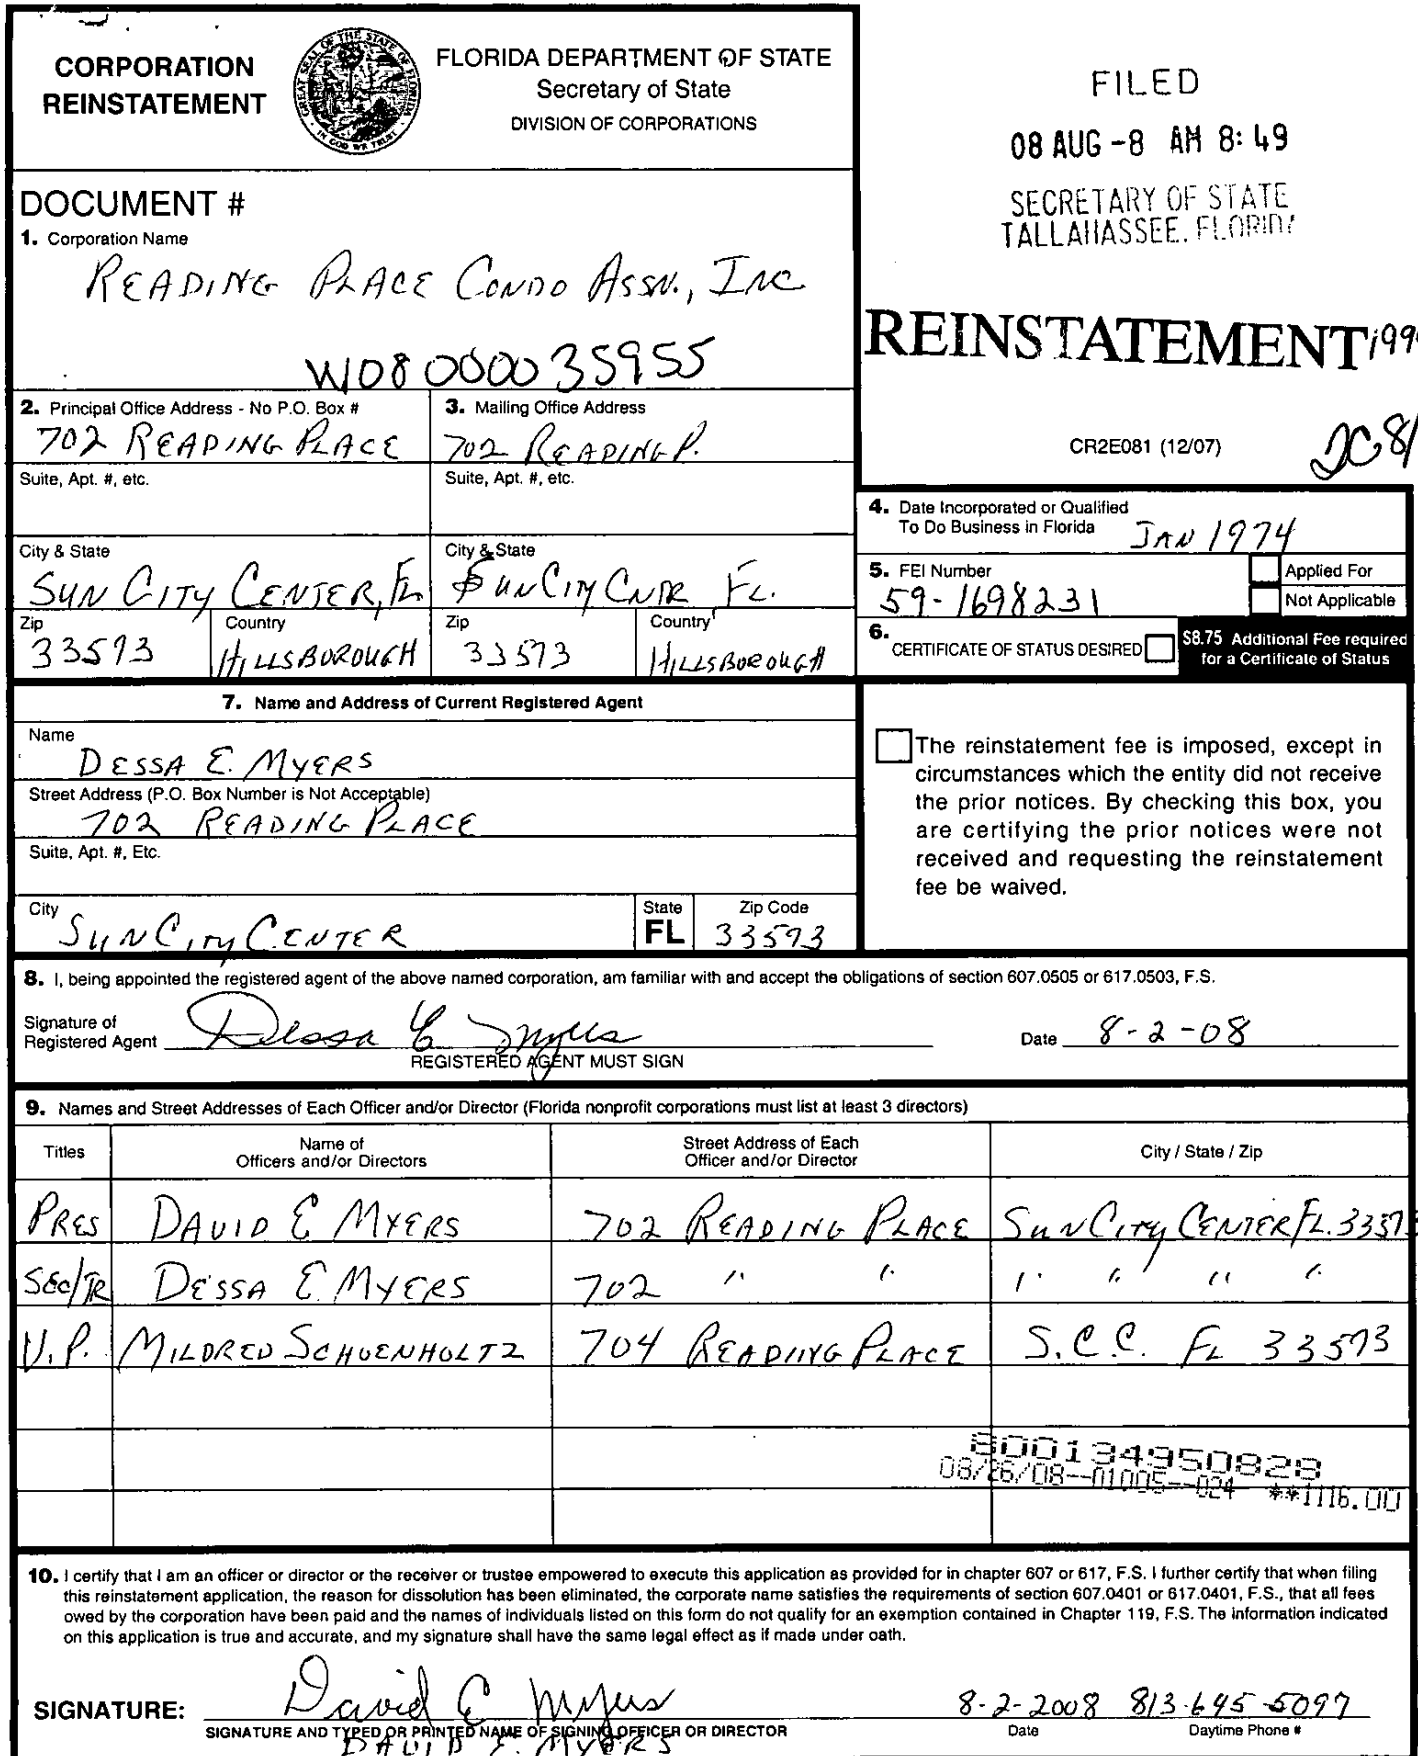 CORPORATION
REINSTATEMENT
GREAT SEAL OF THE STATE OF FLORIDA
IN GOD WE TRUST
FLORIDA DEPARTMENT OF STATE
Secretary of State
DIVISION OF CORPORATIONS
FILED
08 AUG -8 AM 8:49
SECRETARY OF STATE
TALLAHASSEE, FLORIDA
DOCUMENT #
1. Corporation Name
READING PLACE CONDO ASSN., INC
W08000035955
REINSTATEMENT 199
CR2E081 (12/07)
2. Principal Office Address - No P.O. Box #
702 READING PLACE
3. Mailing Office Address
702 READING P.
Suite, Apt. #, etc.
Suite, Apt. #, etc.
City & State
SUN CITY CENTER, FL
City & State
SUN CITY CNTR FL.
Zip
33573
Country
HILLSBOROUGH
Zip
33573
Country
HILLSBOROUGH
4. Date Incorporated or Qualified
To Do Business in Florida JAN 1974
5. FEI Number
59-1698231
Applied For
Not Applicable
6. CERTIFICATE OF STATUS DESIRED
$8.75 Additional Fee required
for a Certificate of Status
7. Name and Address of Current Registered Agent
Name
DESSA E. MYERS
Street Address (P.O. Box Number is Not Acceptable)
702 READING PLACE
Suite, Apt. #, Etc.
City
SUN CITY CENTER
State
FL
Zip Code
33573
The reinstatement fee is imposed, except in
circumstances which the entity did not receive
the prior notices. By checking this box, you
are certifying the prior notices were not
received and requesting the reinstatement
fee be waived.
8. I, being appointed the registered agent of the above named corporation, am familiar with and accept the obligations of section 607.0505 or 617.0503, F.S.
Signature of
Registered Agent Dessa E Myers
REGISTERED AGENT MUST SIGN
Date 8-2-08
9. Names and Street Addresses of Each Officer and/or Director (Florida nonprofit corporations must list at least 3 directors)
Titles
Name of
Officers and/or Directors
Street Address of Each
Officer and/or Director
City / State / Zip
PRES DAVID E MYERS 702 READING PLACE SUN CITY CENTER FL. 33573
SEC/TR DESSA E. MYERS 702 " " " " " "
V.P. MILDRED SCHOENHOLTZ 704 READING PLACE S.C.C. FL 33573
800134950828
08/26/08--01005--024 **1116.00
10. I certify that I am an officer or director or the receiver or trustee empowered to execute this application as provided for in chapter 607 or 617, F.S. I further certify that when filing
this reinstatement application, the reason for dissolution has been eliminated, the corporate name satisfies the requirements of section 607.0401 or 617.0401, F.S., that all fees
owed by the corporation have been paid and the names of individuals listed on this form do not qualify for an exemption contained in Chapter 119, F.S. The information indicated
on this application is true and accurate, and my signature shall have the same legal effect as if made under oath.
SIGNATURE: David E Myers 8-2-2008 813-645-5097
SIGNATURE AND TYPED OR PRINTED NAME OF SIGNING OFFICER OR DIRECTOR
Date
Daytime Phone #
DAVID E. MYERS